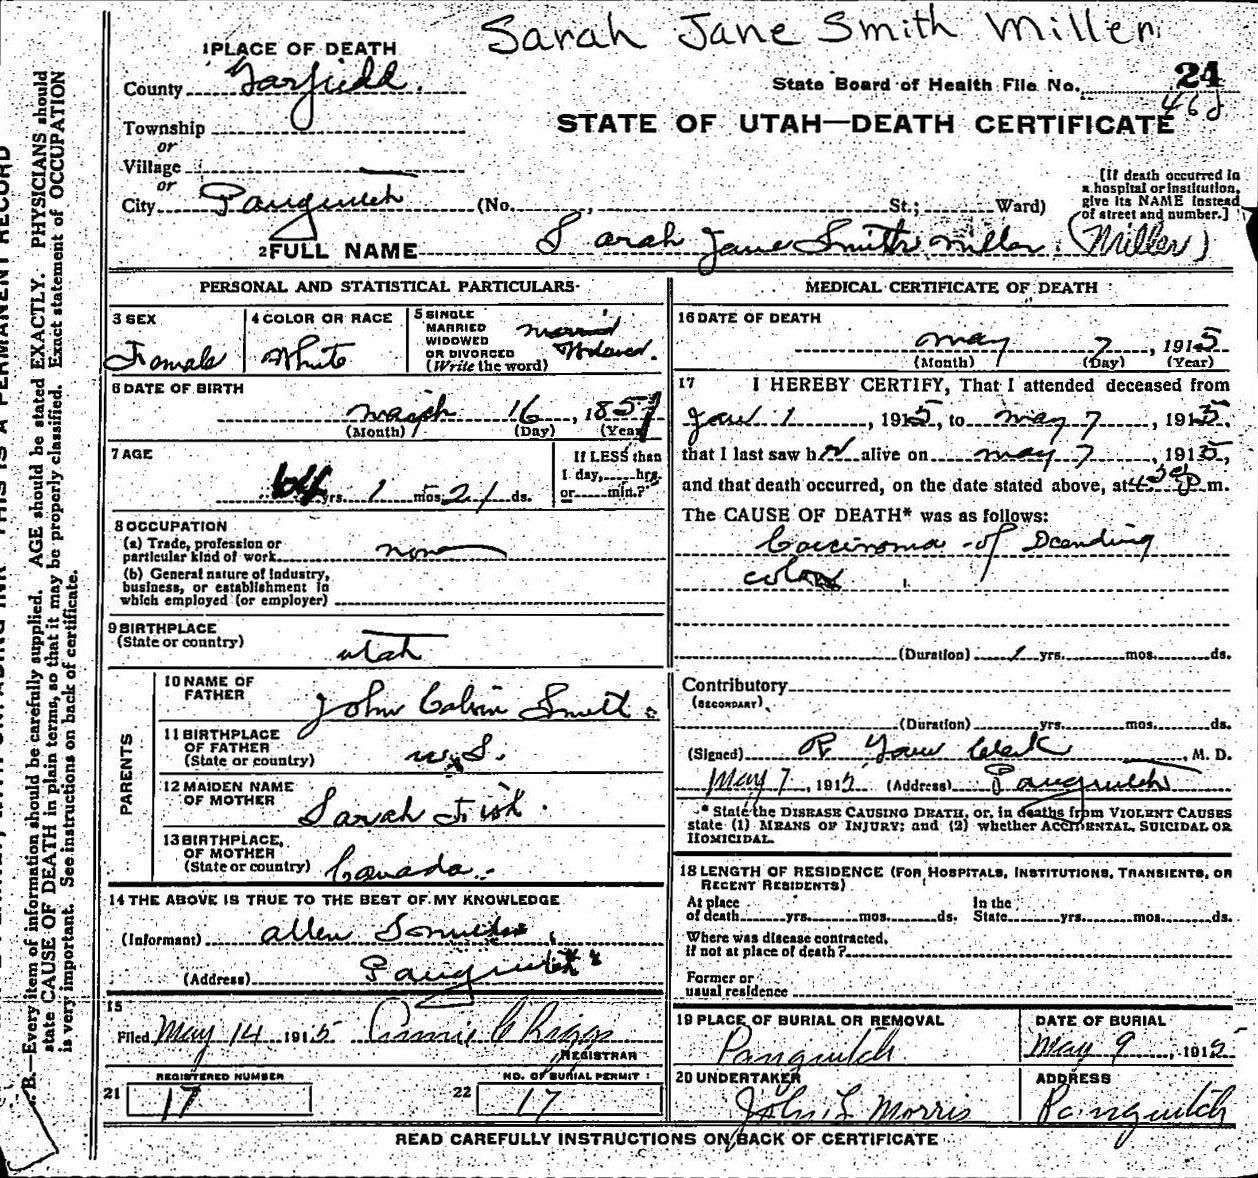 Sarah Jane Smith Miller
1 PLACE OF DEATH
County Garfield.
State Board of Health File No. 24
468
STATE OF UTAH—DEATH CERTIFICATE
Township
or
Village
or
City Panguitch (No. , St.; Ward)
[If death occurred in a hospital or institution, give its NAME instead of street and number.]
2 FULL NAME Sarah Jane Smith Miller. (Miller)
PERSONAL AND STATISTICAL PARTICULARS
3 SEX
Female
4 COLOR OR RACE
White
5 SINGLE MARRIED WIDOWED OR DIVORCED (Write the word)
married
Widowed.
6 DATE OF BIRTH
March 16, 1851
(Month) (Day) (Year)
7 AGE
64 yrs. 1 mos. 21 ds.
If LESS than 1 day, hrs. or min.?
8 OCCUPATION
(a) Trade, profession or particular kind of work none
(b) General nature of industry, business, or establishment in which employed (or employer)
9 BIRTHPLACE (State or country) utah
PARENTS
10 NAME OF FATHER John Calvin Smith.
11 BIRTHPLACE OF FATHER (State or country)
12 MAIDEN NAME OF MOTHER Sarah Fish.
13 BIRTHPLACE, OF MOTHER (State or country) Canada.
14 THE ABOVE IS TRUE TO THE BEST OF MY KNOWLEDGE
(Informant) allen
(Address) Panguitch
15
Filed May 14 1915 Annie C Riggs
REGISTRAR
21 REGISTERED NUMBER 17
22 NO. OF BURIAL PERMIT 17
MEDICAL CERTIFICATE OF DEATH
16 DATE OF DEATH
may 7, 1915
(Month) (Day) (Year)
17 I HEREBY CERTIFY, That I attended deceased from
Jan 1, 1915, to may 7, 1915,
that I last saw her alive on may 7, 1915,
and that death occurred, on the date stated above, at P m.
The CAUSE OF DEATH* was as follows:
Carcinoma of Dcending
colon
(Duration) 1 yrs. mos. ds.
Contributory
(SECONDARY)
(Duration) yrs. mos. ds.
(Signed) R , M. D.
May 7, 1915 (Address) Panguitch
* State the DISEASE CAUSING DEATH, or, in deaths from VIOLENT CAUSES
state (1) MEANS OF INJURY; and (2) whether ACCIDENTAL, SUICIDAL OR
HOMICIDAL.
18 LENGTH OF RESIDENCE (FOR HOSPITALS, INSTITUTIONS, TRANSIENTS, OR RECENT RESIDENTS)
At place of death yrs. mos. ds. In the State yrs. mos. ds.
Where was disease contracted, if not at place of death?
Former or usual residence
19 PLACE OF BURIAL OR REMOVAL
Panguitch
DATE OF BURIAL
May 9, 1915
20 UNDERTAKER
John L Morris
ADDRESS
Panguitch
READ CAREFULLY INSTRUCTIONS ON BACK OF CERTIFICATE
THIS IS A PERMANENT RECORD
B.—Every item of information should be carefully supplied. AGE should be stated EXACTLY. PHYSICIANS should
state CAUSE OF DEATH in plain terms, so that it may be properly classified. Exact statement of OCCUPATION
is very important. See instructions on back of certificate.